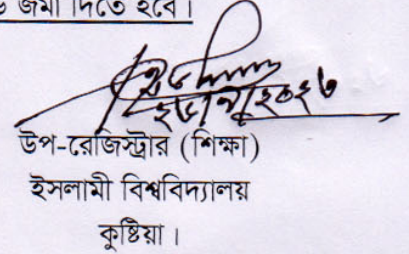 জমা দিতে হবে।
উপ-রেজিস্ট্রার (শিক্ষা)
ইসলামী বিশ্ববিদ্যালয়
কুষ্টিয়া।